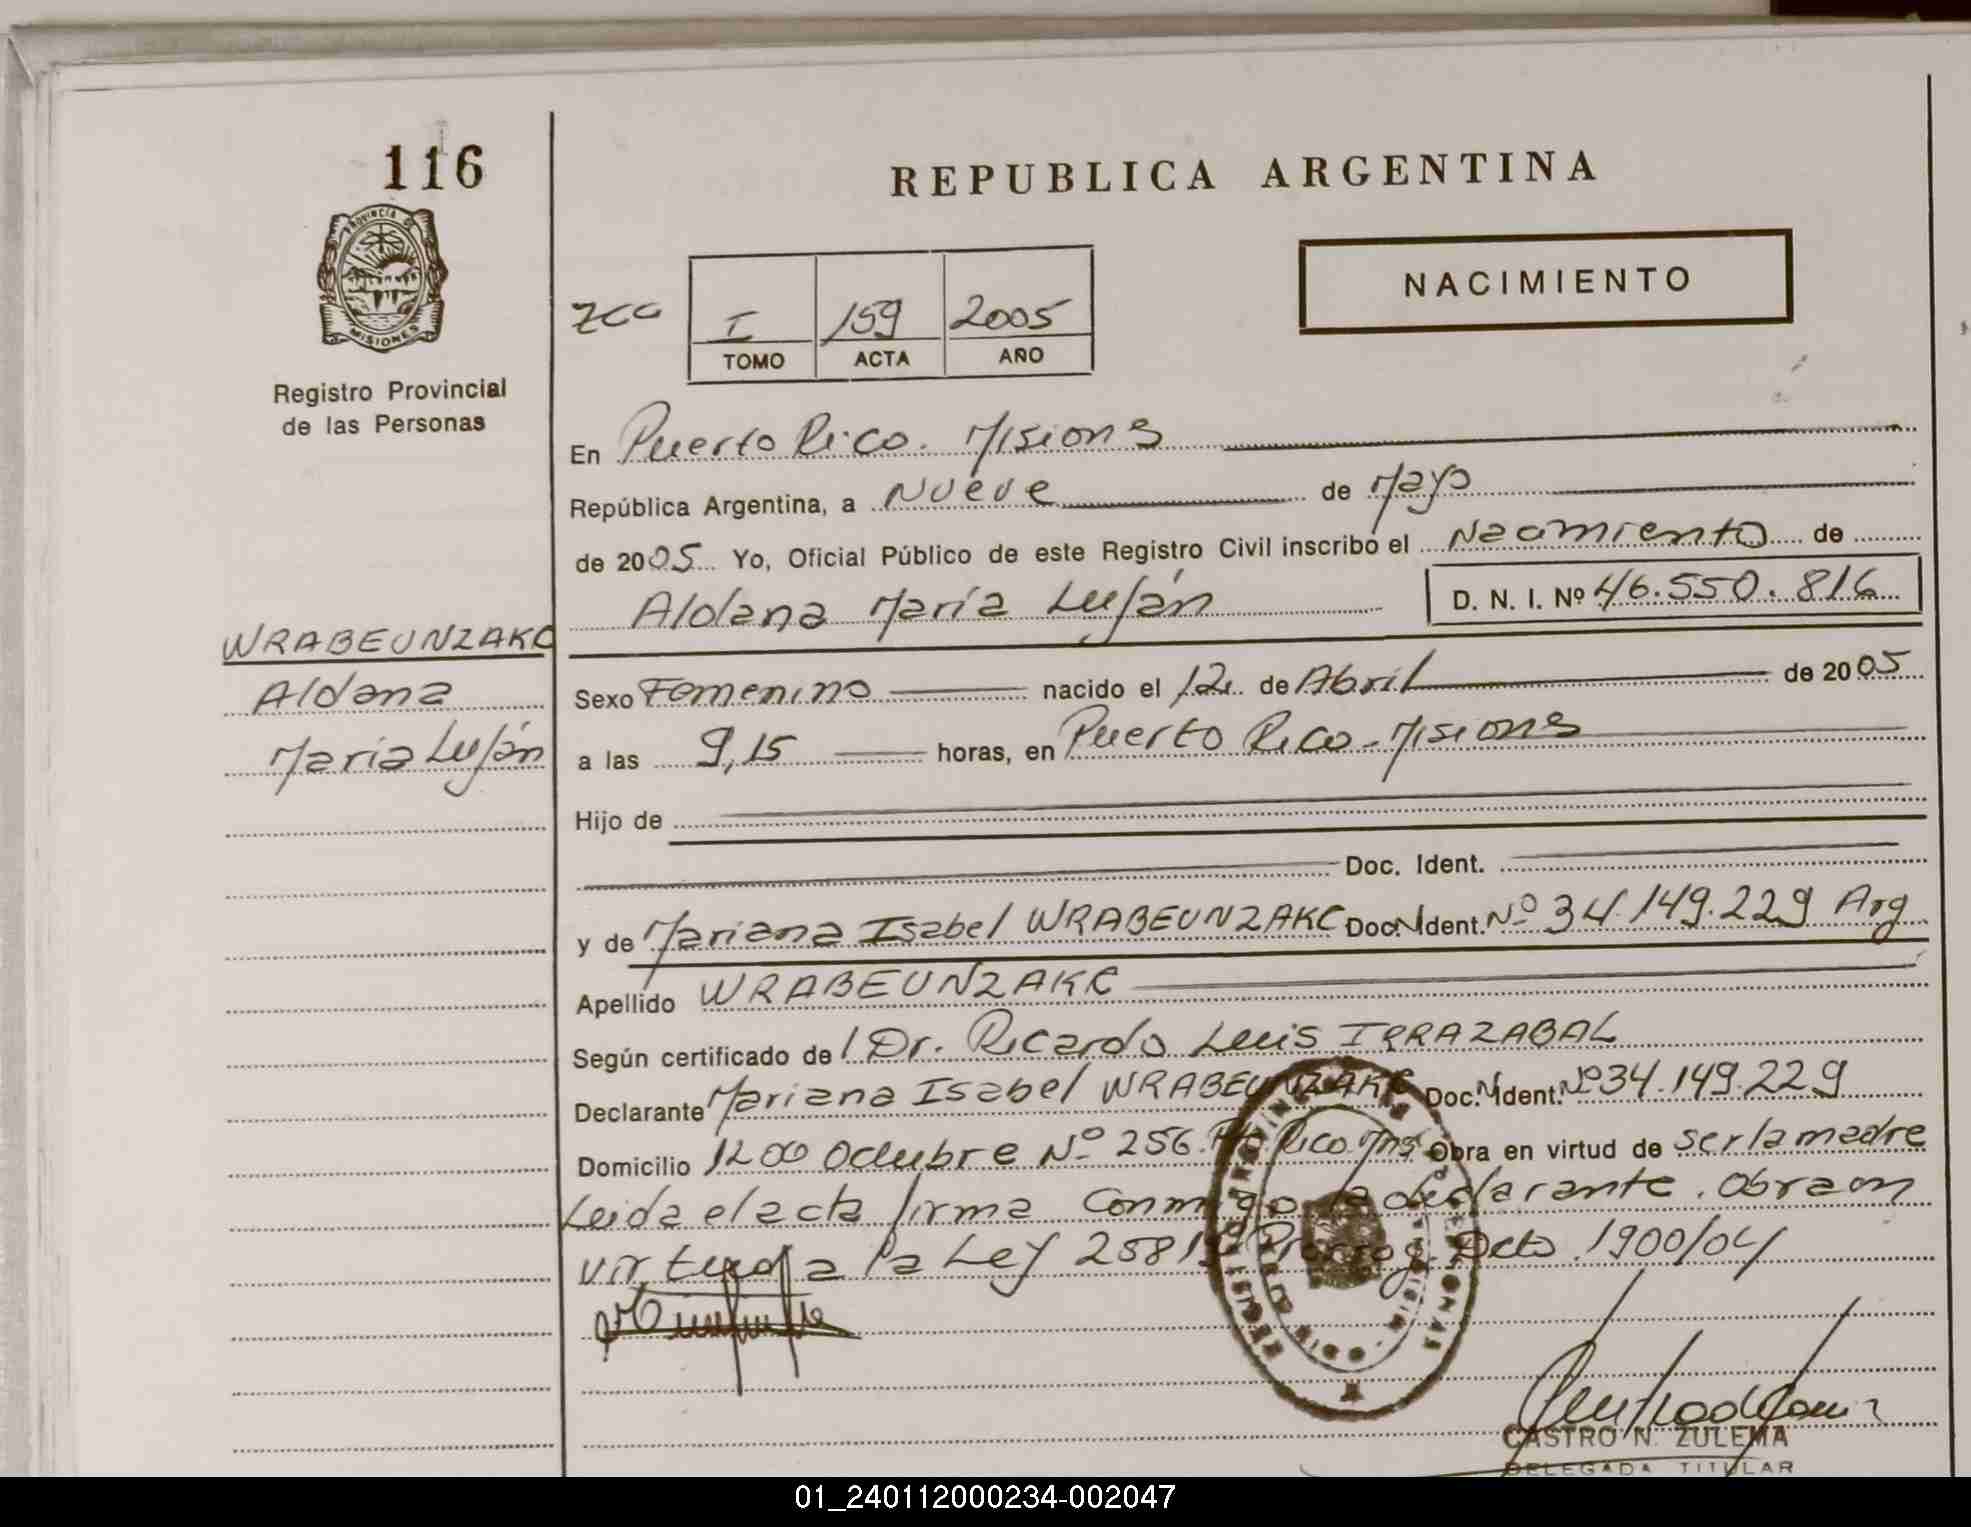 116
REPUBLICA ARGENTINA
PROVINCIA DE
MISIONES
Registro Provincial
de las Personas
NACIMIENTO
I 159 2005
TOMO ACTA AÑO
En Puerto Rico. Misiones
República Argentina, a Nueve de Mayo
de 2005 Yo, Oficial Público de este Registro Civil inscribo el Nacimiento de
Aldana María Luján D. N. I. Nº 46.550.816
WRABEUNZAKC
Aldana
María Luján
Sexo Femenino nacido el 12 de Abril de 2005
a las 9,15 horas, en Puerto Rico - Misiones
Hijo de
Doc. Ident.
y de Mariana Isabel WRABEUNZAKC Doc. Ident. Nº 34.149.229 Arg
Apellido WRABEUNZAKC
Según certificado de l Dr. Ricardo Luis IRRAZABAL
Declarante Mariana Isabel WRABEUNZAKC Doc. Ident. Nº 34.149.229
Domicilio 12 de Octubre Nº 256. Pto. Rico. Mns Obra en virtud de ser la madre
Leida el acta firma conmigo la declarante. Obra en
virtud a la Ley 25819 Prorrog. Dcto 1900/04
CASTRO N. ZULEMA
DELEGADA TITULAR
01_240112000234-002047